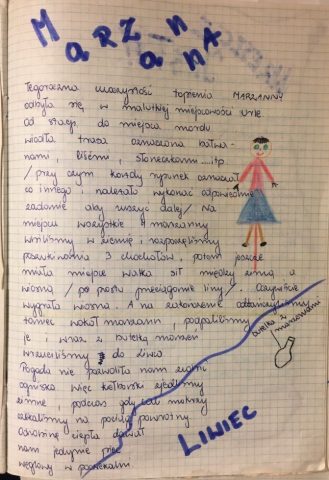 MARZANNA
Tegoroczna uroczystość topienia MARZANNY
odbyła się w malutkiej miejscowości Urle
Od stacji do miejsca mordu
wiodła trasa oznaczona bałwa-
nami, liśćmi, słoneczkami...itp
/przy czym każdy rysunek oznaczał
co innego i należało wykonać odpowiednie
zadanie aby ruszyć dalej/ Na
miejscu wszystkie 4 marzanny
wbiliśmy w ziemię i rozpoczęliśmy
3 chochołów, potem jeszcze
miała miejsce walka sił między zimą a
wiosną /po prostu przeciąganie liny/. Oczywiście
wygrała wiosna. A na zakończenie odtańczyliśmy
taniec wokół marzann, podpaliliśmy
je i wraz z butelką marzeń
wrzuciliśmy do Liwca.
Pogoda nie pozwoliła nam zrobić
ogniska więc kiełbaski zjedliśmy
zimne, podczas gdy cali mokrzy
czekaliśmy na pociąg powrotny.
Odrobinę ciepła dawał
nam jedynie piec
węglowy w poczekalni.
butelka z
marzeniami
LIWIEC